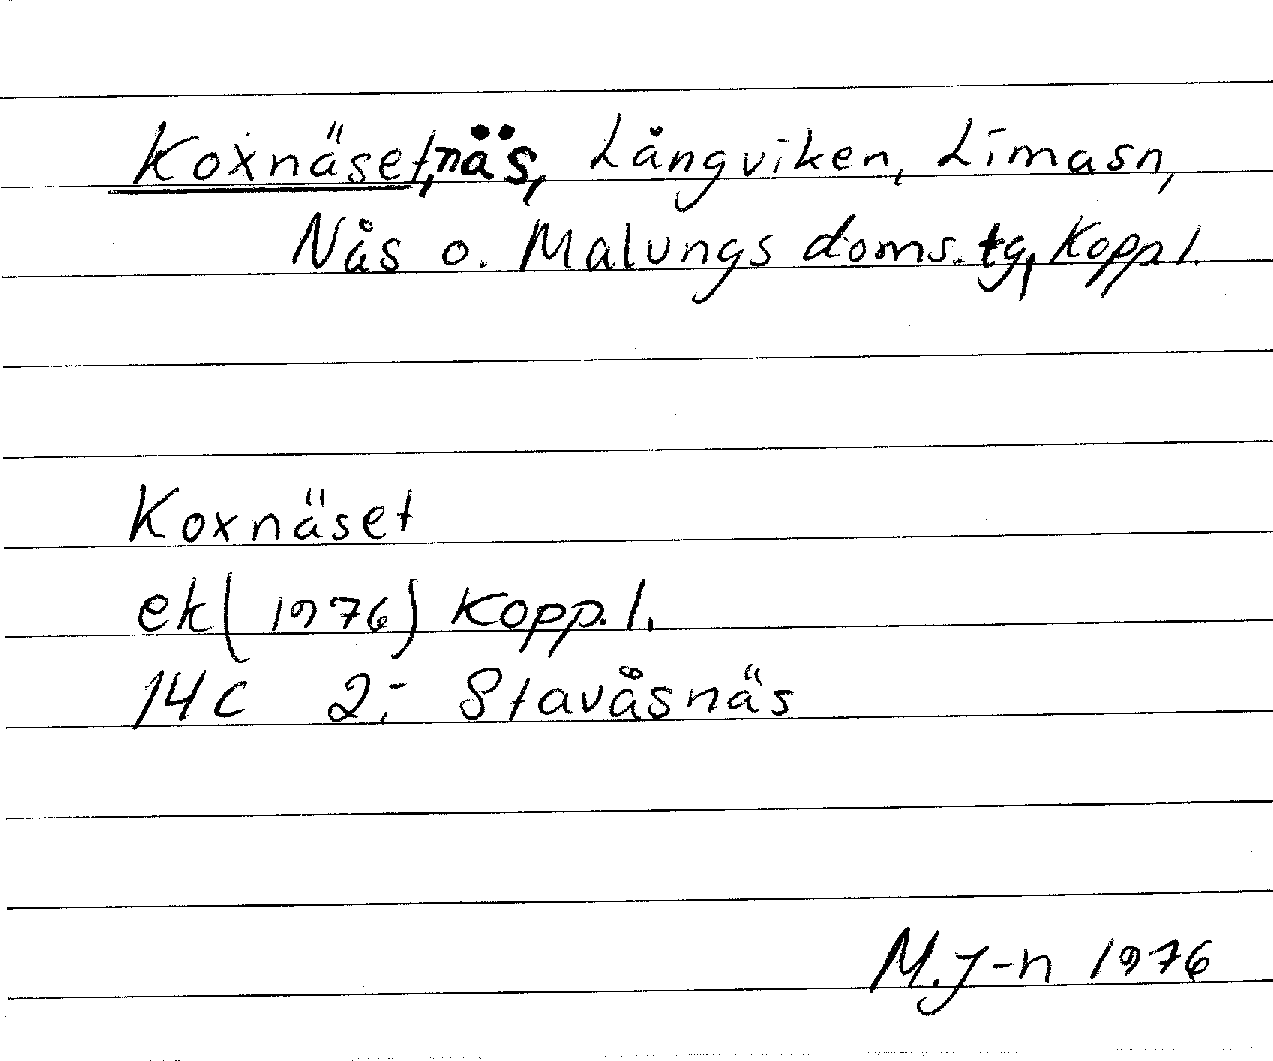 Koxnäset, näs, Långviken, Limasn,
Nås o. Malungs doms.tg, Koppl.
Koxnäset
ek(1976) Kopp.l.
14C 2:- Stavåsnäs
M.J-n 1976